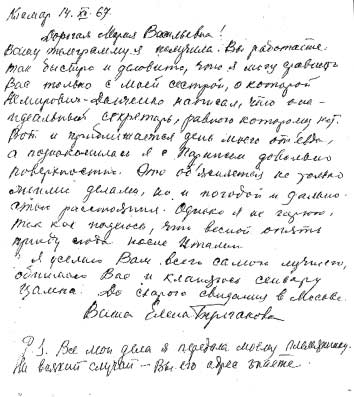 Кламар 14. XI. 67
Дорогая Мария Васильевна!
Вашу телеграмму я получила. Вы работаете
так быстро и деловито, что я могу сравнить
Вас только с моей сестрой, о которой
Немирович-Данченко написал, что она –
идеальный секретарь, равного которому нет.
Вот и приближается день моего отъезда,
а познакомилась я с Парижем довольно
поверхностно. Это объясняется не только
делами, но и погодой и дально-
стью расстояния. Однако я не горюю,
так как надеюсь, что весной опять
приеду сюда после Италии
Я желаю Вам всего самого лучшего,
обнимаю Вас и кланяюсь сеньору
Цампа. До скорого свидания в Москве.
Ваша Елена Булгакова
P.S. Все мои дела я передала моему племяннику.
На всякий случай – Вы его адрес знаете.